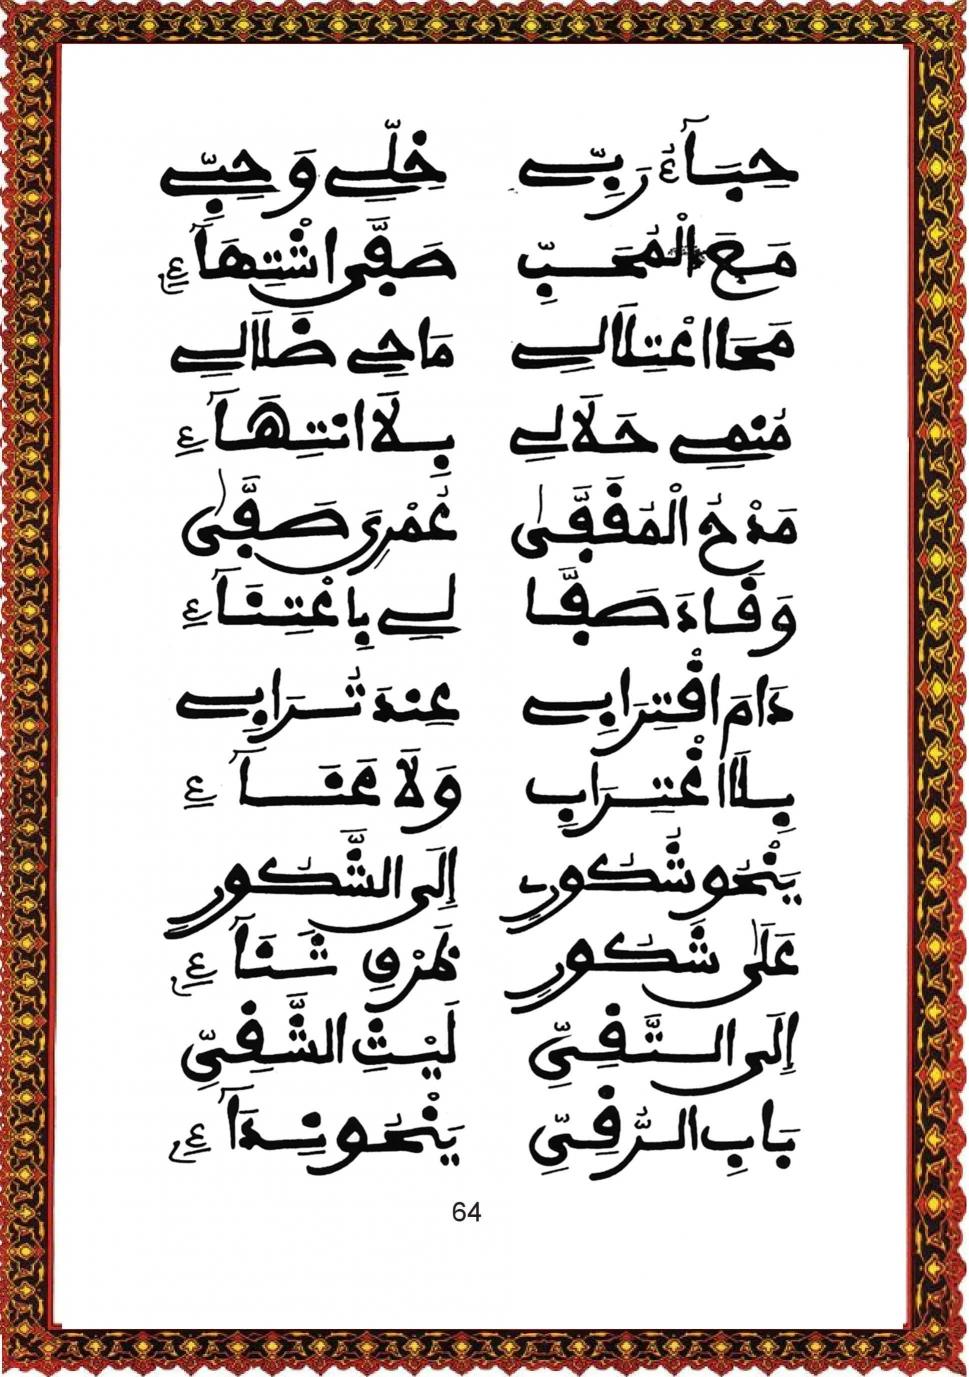 حِبَآءُ رَبِّے خِلِّے وَحِبِّے
مَعَ الْمُحَبِّ صَفَّى اشْتِهَآءِ
مَحَا اعْتِلَالِے مَاحِے ضَلَالِے
مُنمِے حَلَالِے بِلَا انتِهَآءِ
مَدْحُ الْمُقَفَّى عُمْرِىَ صَفَّى
وَقَادَ صَفَّا لِے بِاعْتِنَآءِ
دَامَ اقْتِرَابِے عِندَ تُرَابِے
بِلَا اغْتِرَابِ وَلَا عَنَآءِ
يَنْحُو شُكُورِ إِلَى الشَّكُورِ
عَلَى شَكُورٍ ثَنَآءِ
إِلَى التَّقِىِّ لَيْثِ الشَّقِىِّ
بَابِ الرُّقِىِّ يَنْحُو نِدَآءِ
64